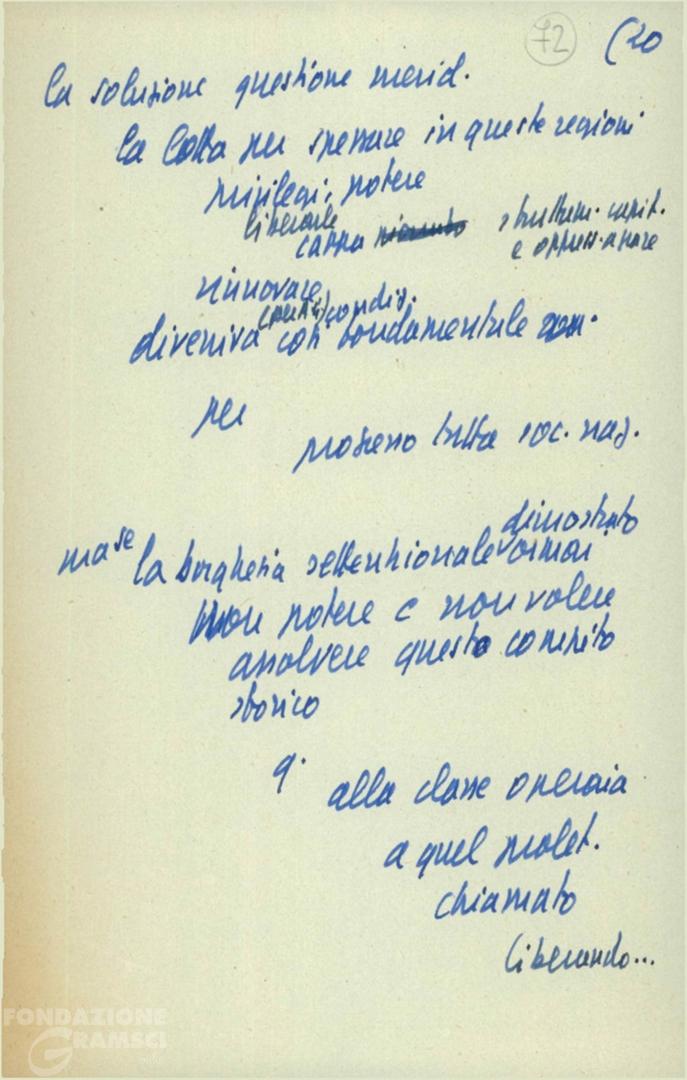 72 (20
la soluzione questione merid.
la lotta per spezzare in queste regioni
privilegi, potere
liberare sfruttam. capit.
campa e oppress. agrare
rinnovare
condiz.
diveniva così fondamentale
per
progresso tutta soc. naz.
ma se la borghesia settentrionale dimostrato ormai
non potere e non volere
assolvere questo compito
storico
q.
alla classe operaia
a quel prolet.
chiamato
liberando...
FONDAZIONE
GRAMSCI